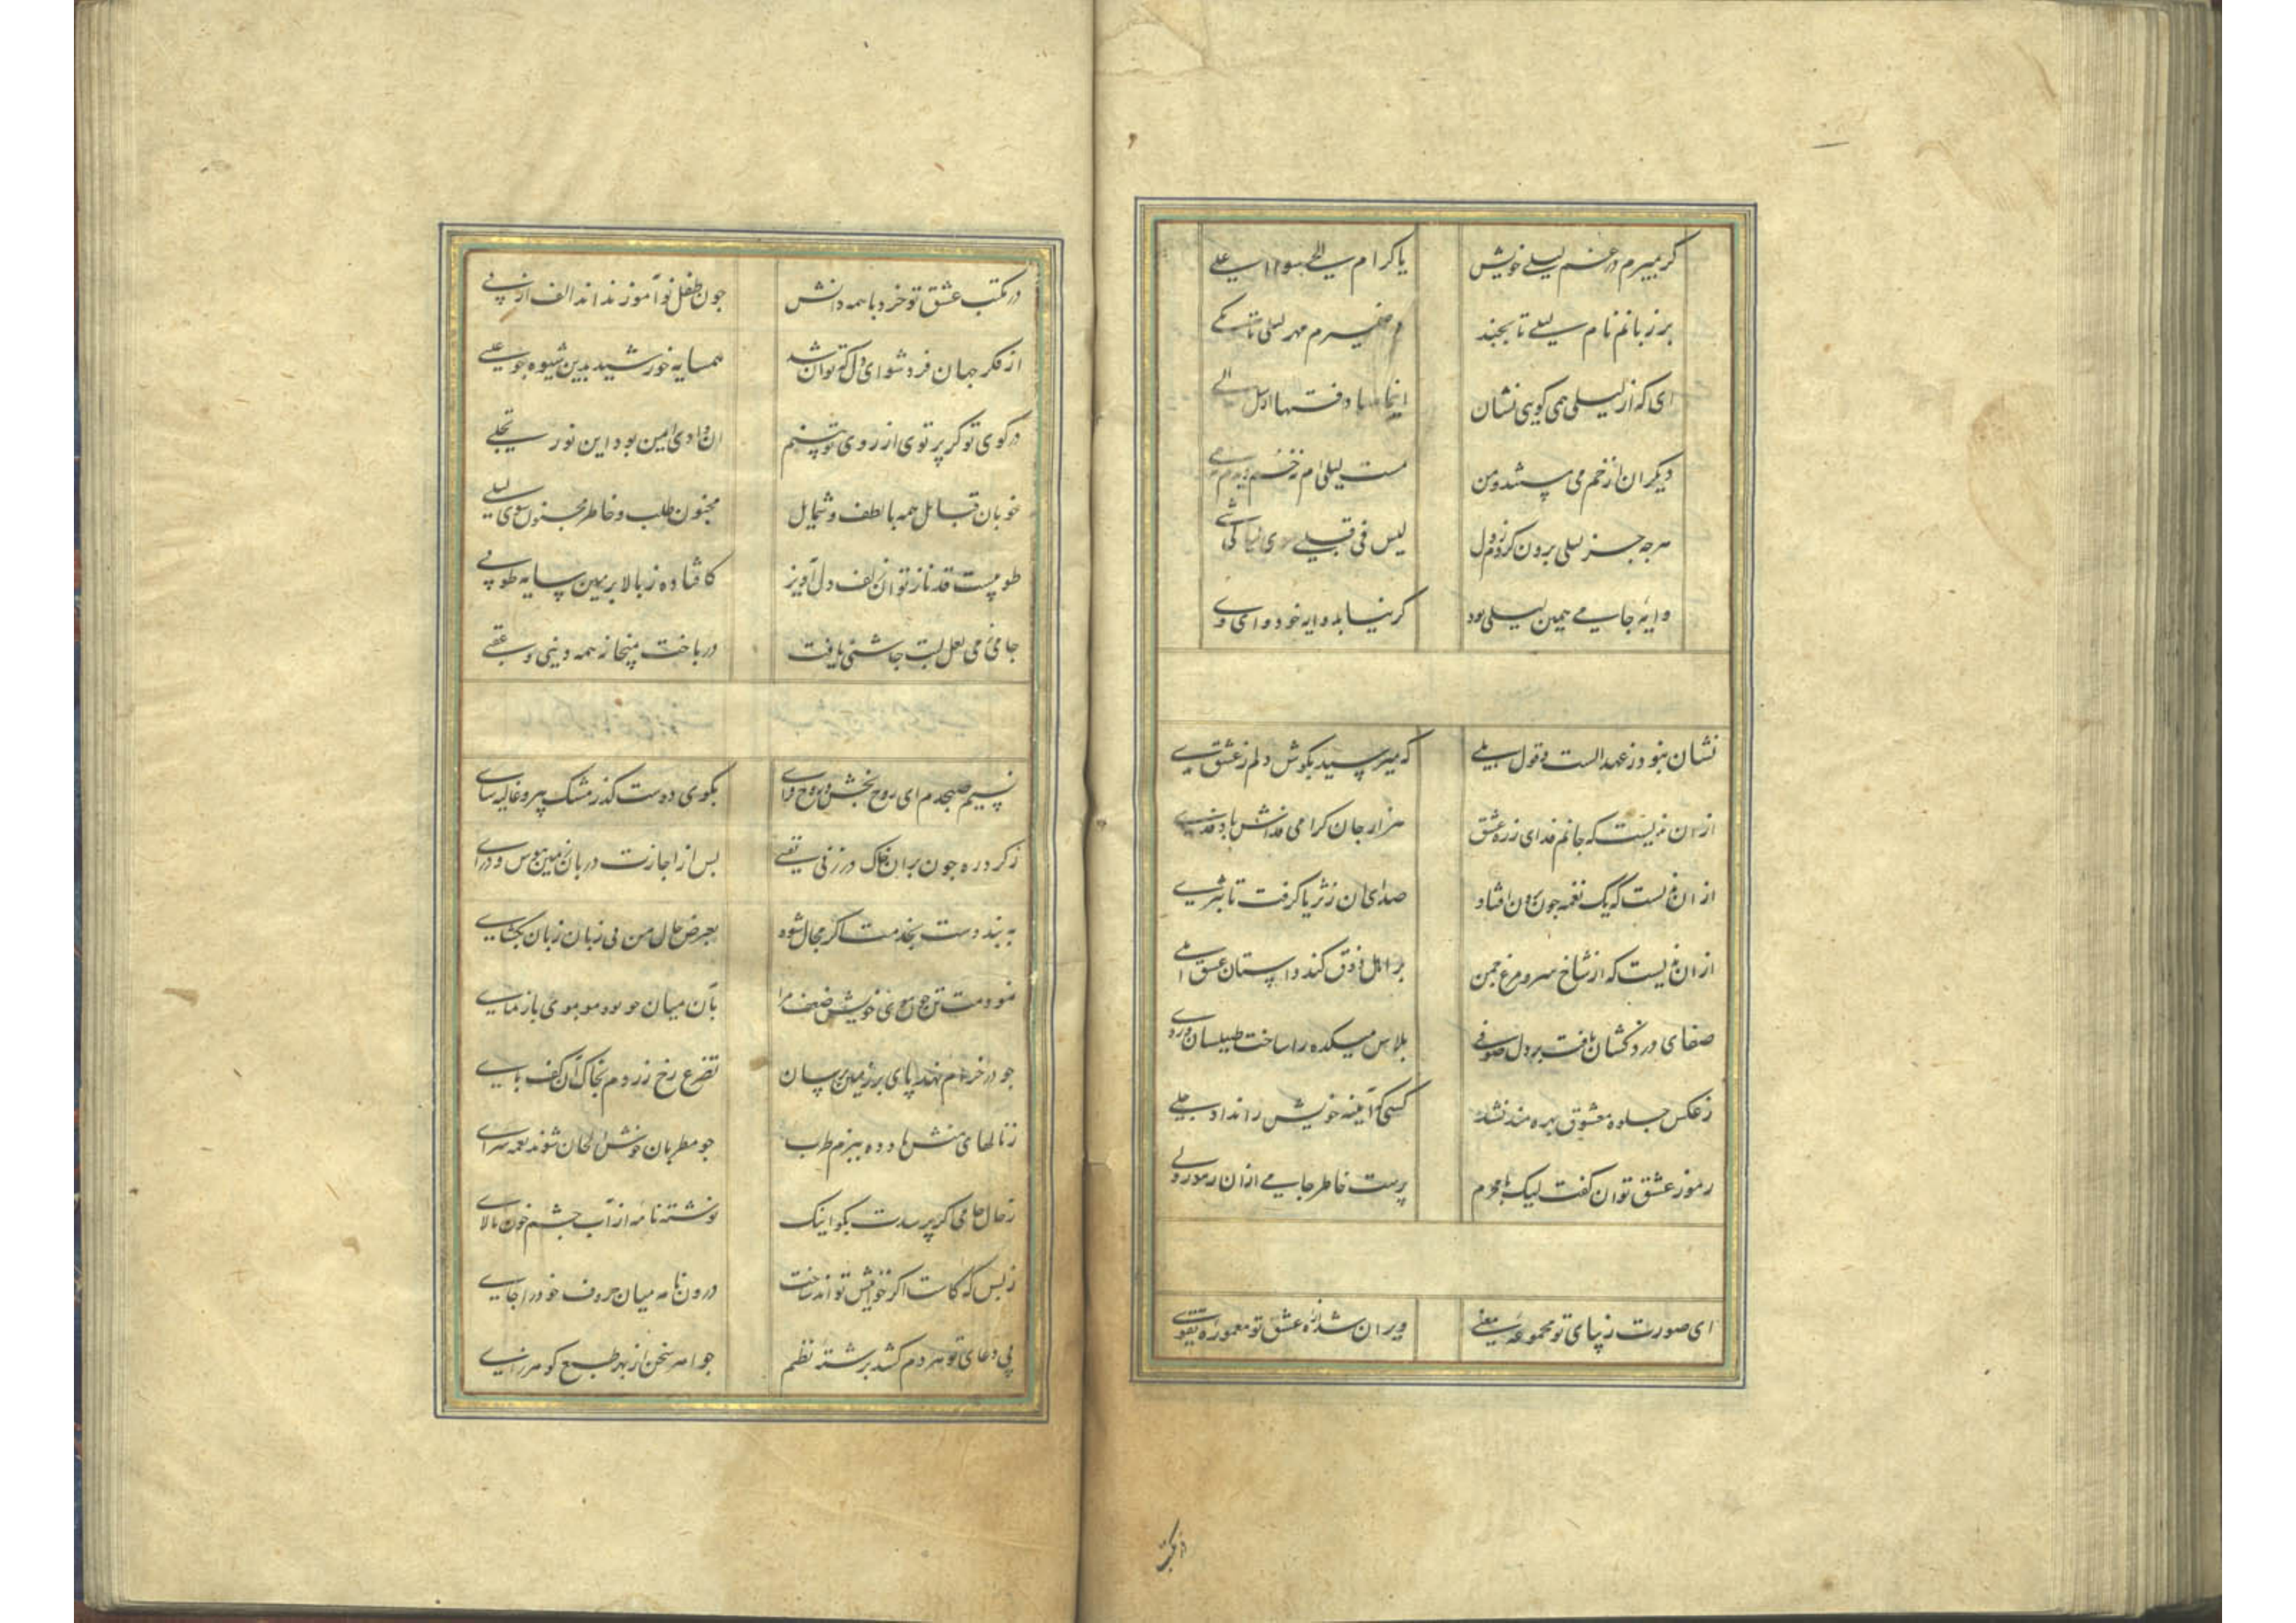 گر بمیرم در غم لیلی خویش یا کرام الحی
بر زبانم نام لیلی تا بجنبد در ضمیرم مهر لیلی تا بکی
ای که از لیلی همی گویی نشان
دیگران از خم می مستند و من مست لیلی ام نه خم دیدم نه می
هرچه جز لیلی برون کردم ز دل لیس فی قلبی سوی لیلی شی
وایه جامی همین لیلی بود گر نیابد وایه خود وای وی
نشان نبود ز عهد الست و قول بلی که میرسید بگوش دلم ز عشق ندی
از ان ندیست که جانم فدای زره عشق هزار جان گرامی فداش باد فدی
از ان ندیست که یک نغمه چون برون افتاد صدای ان ز ثریا گرفت تا بثری
از ان ندیست که از شاخ سرو مرغ چمن بر اهل ذوق کند داستان عشق املی
صفای درد کشان یافت بر دل صوفی پلاس میکده را ساخت طیلسان وردی
ز عکس جلوه معشوق بهره مند نشد کسی که آینه خویش را نداد جلی
رموز عشق توان گفت لیک با محرم پرست خاطر جامی از ان رموز ولی
ای صورت زیبای تو مجموعه معنی ویران شده از عشق تو معموره تقوی
در مکتب
در مکتب عشق تو خرد با همه دانش چون طفل نو آموز نداند الف از بی
از فکر جهان فرد شو ای دل که توان شد همسایه خورشید بدین شیوه چو عیسی
در کوی تو گر پرتوی از روی تو بینم ان وادی ایمن بود این نور تجلی
خوبان قبایل همه با لطف و شمایل مجنون طلب و خاطر مجنون سوی لیلی
طوبیست قد ناز تو ان زلف دل آویز کافتاده ز بالا بزمین سایه طوبی
جامی ز می لعل لبت چاشنی یافت در باخت بمیخانه همه دینی و عقبی
نسیم صبحدم ای روح بخش و روح فزای بکوی دوست گذر مشک بیز و غالیه سای
ز گرد ره چون بران خاک در زنی نفسی پس از اجازت دربان زمین ببوس و در ای
به بند دست بخدمت اگر مجال شود بعرض حال من بی زبان زبان بگشای
نمودمت تن چون موی خویش ضعف مرا بآن میان چو بود مو بموی باز نمای
چو در خرام نهد پای بر زمین برسان تضرع رخ زردم بخاک آن کف پای
ز نالهای منش یاد ده ببزم طرب چو مطربان خوش الحان شوند نغمه سرای
ز حال جامی گر پرسدت بگو اینک نوشته نامه از آب چشم خون پالای
ز بس که کاست اگر خواهش تواند ساخت درون نامه میان حروف خود را جای
پی دعای تو هر دم کشد برشته نظم جواهر سخن از بهر طبع گوهر زای